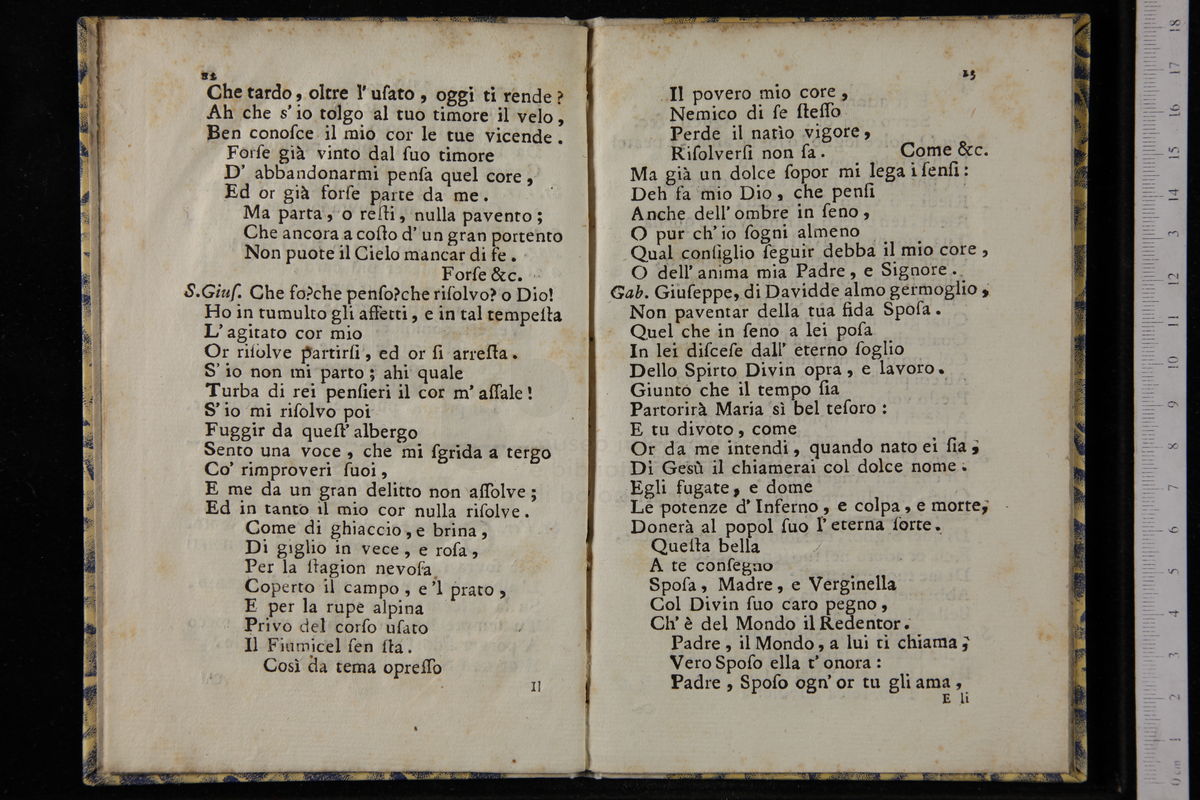 22
Che tardo, oltre l' uſato, oggi ti rende?
Ah che s' io tolgo al tuo timore il velo,
Ben conoſce il mio cor le tue vicende.
Forſe già vinto dal ſuo timore
D' abbandonarmi penſa quel core,
Ed or già forſe parte da me.
Ma parta, o reſti, nulla pavento;
Che ancora a coſto d' un gran portento
Non puote il Cielo mancar di fe.
Forſe &c.
S.Giuſ. Che fo?che penſo?che riſolvo? o Dio!
Ho in tumulto gli affetti, e in tal tempeſta
L' agitato cor mio
Or riſolve partirſi, ed or ſi arreſta.
S' io non mi parto; ahi quale
Turba di rei penſieri il cor m' aſſale!
S' io mi riſolvo poi
Fuggir da queſt' albergo
Sento una voce, che mi ſgrida a tergo
Co' rimproveri ſuoi,
E me da un gran delitto non aſſolve;
Ed in tanto il mio cor nulla riſolve.
Come di ghiaccio, e brina,
Di giglio in vece, e roſa,
Per la ſtagion nevoſa
Coperto il campo, e 'l prato,
E per la rupe alpina
Privo del corſo uſato
Il Fiumicel ſen ſta.
Così da tema opreſſo
Il
23
Il povero mio core,
Nemico di ſe ſteſſo
Perde il natìo vigore,
Riſolverſi non ſa. Come &c.
Ma già un dolce ſopor mi lega i ſenſi:
Deh fa mio Dio, che penſi
Anche dell' ombre in ſeno,
O pur ch' io ſogni almeno
Qual conſiglio ſeguir debba il mio core,
O dell' anima mia Padre, e Signore.
Gab. Giuſeppe, di Davidde almo germoglio,
Non paventar della tua fida Spoſa.
Quel che in ſeno a lei poſa
In lei diſceſe dall' eterno ſoglio
Dello Spirto Divin opra, e lavoro.
Giunto che il tempo ſia
Partorirà Maria sì bel teſoro:
E tu divoto, come
Or da me intendi, quando nato ei ſia;
Di Gesù il chiamerai col dolce nome.
Egli fugate, e dome
Le potenze d' Inferno, e colpa, e morte,
Donerà al popol ſuo l' eterna ſorte.
Queſta bella
A te conſegno
Spoſa, Madre, e Verginella
Col Divin ſuo caro pegno,
Ch' è del Mondo il Redentor.
Padre, il Mondo, a lui ti chiama;
Vero Spoſo ella t' onora:
Padre, Spoſo ogn' or tu gli ama,
E li